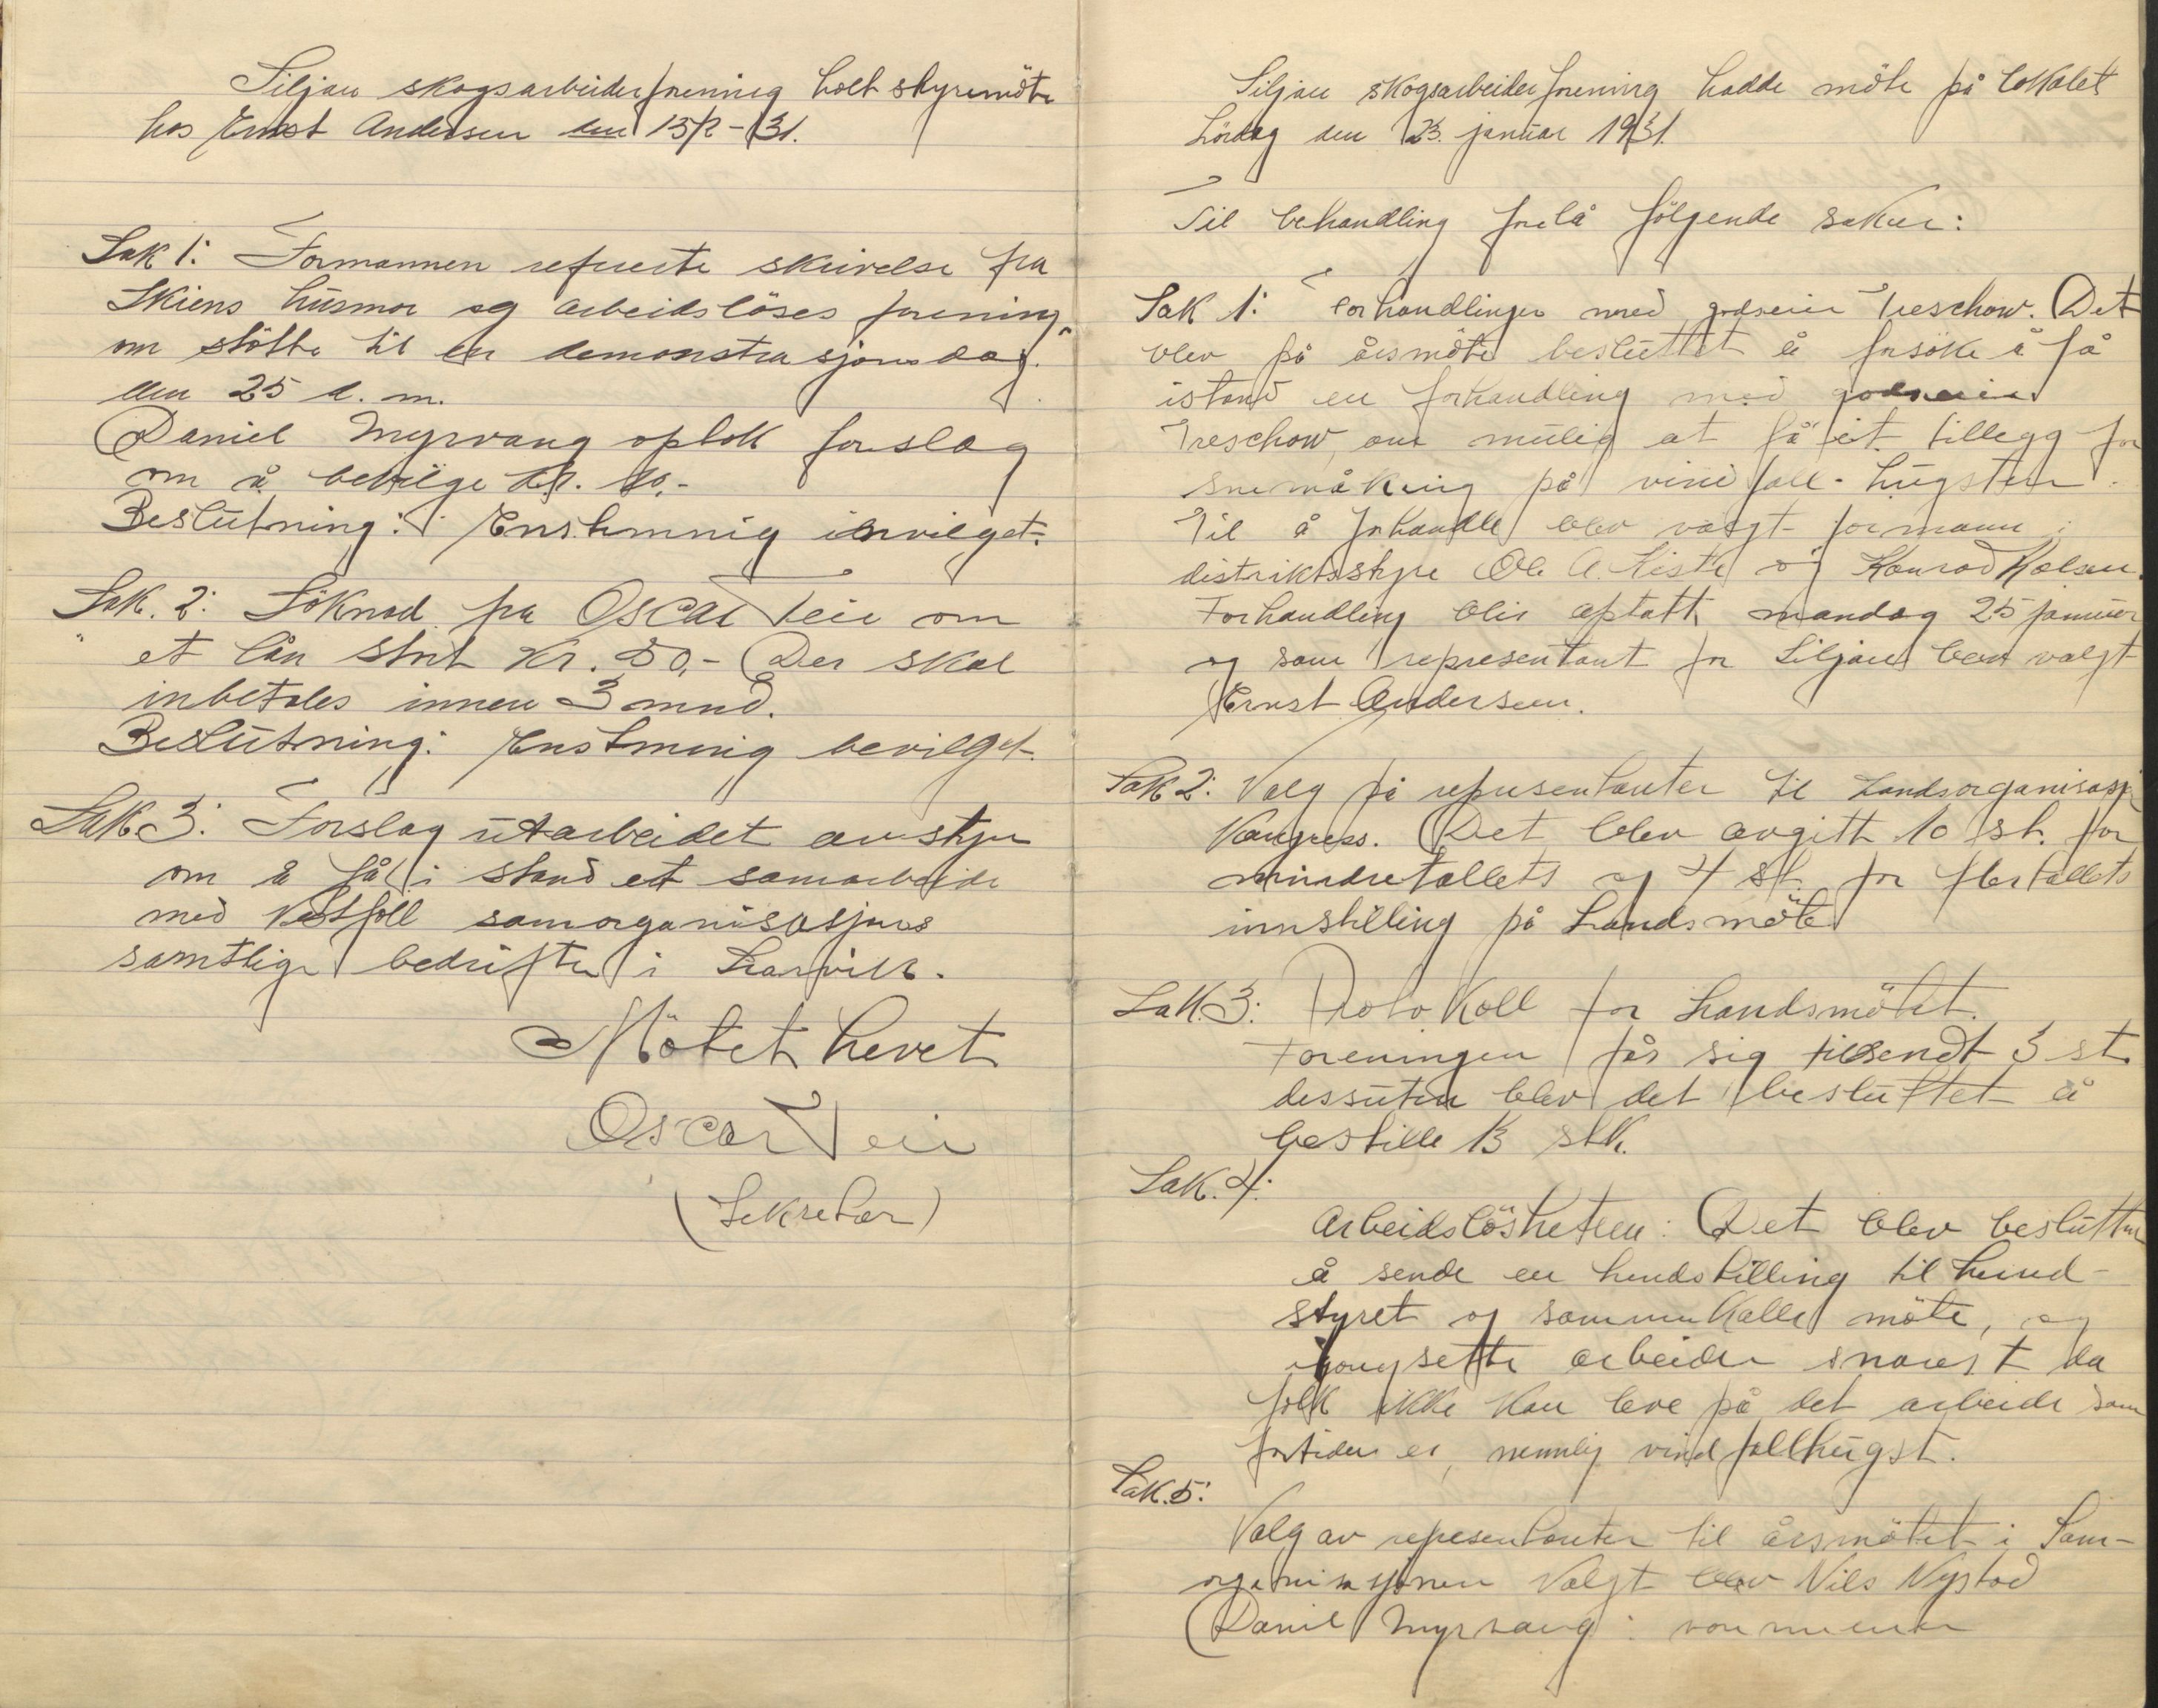 Siljan skogsarbeiderforening holt styremöte
hos Ernst Andersen den 15/2-31.
Sak 1: Formannen refererte skrivelse fra
Skiens husmor og arbeidslöses forening,
om stötte til en demonstrasjonsdag.
den 25 d. m.
Daniel Myrvang optok forslag
om å bevilge kr. 10,-
Beslutning: Enstemmig innvilget.
Sak. 2: Söknad fra Oscar Teie om
et lån stort Kr. 50,- Der skal
inbetales innen 3 mnd.
Beslutning: Enstemig bevilget.
Sak 3: Forslag utarbeidet av styre
om å få i stand et samarbeide
med Vestfoll samorganisasjons
samtlige bedrifter i Larvik.
Mötet hevet
Oscar Teie
(Sekretær)
Siljan skogsarbeiderforening hadde möte på lokalet
Lördag den 23. januar 1931.
Til behandling forelå fölgende saker:
Sak 1: Forhandlinger med godseier Treschow. Det
blev på årsmöte besluttet å forsöke å få
istand en forhandling med godseier
Treschow, om mulig at få et tillegg for
snemåking på vindfall-hugsten.
Til å forhandle blev valgt formann i
distriktsstyre Ole A. Liste og Konrad Kolsen.
Forhandling blir optatt mandag 25 januar
og som representant for Siljan blev valgt
Ernst Andersen.
Sak 2: Valg på representanter til Landsorganisasj
Kongress. Det blev avgitt 10 st. for
mindretallets og 4 st. for flertallets
innstilling på Landsmöte
Sak. 3: Protokoll for Landsmötet.
Foreningen får sig tilsendt 3 st.
dessuten blev det besluttet å
bestille 13 stk.
Sak. 4:
Arbeidslösheten: Det blev besluttet
å sende en hendstilling til herred-
styret og sammenkalle möte, og
igangsette arbeider snarest da
folk ikke kan leve på det arbeide som
fortiden er, nemmlig vindfallhugst.
Sak. 5:
Valg av representanter til årsmötet i Sam-
organisasjonen Valgt blev Nils Nystad
Daniel Myrvang: